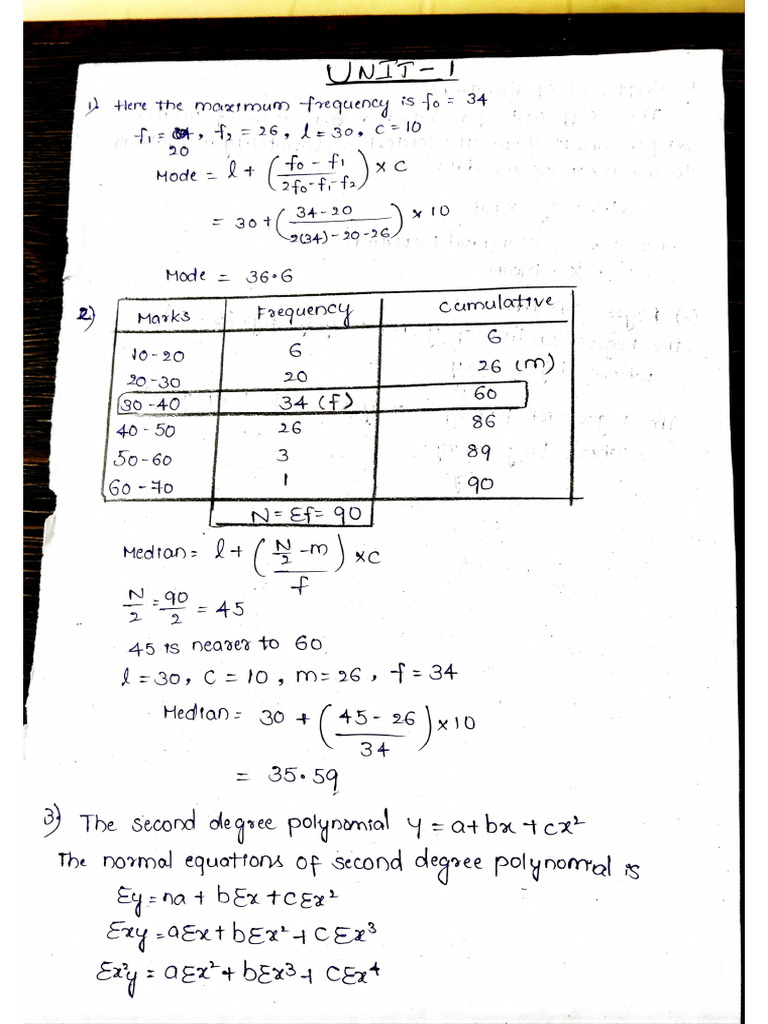 UNIT-1
1) Here the maximum frequency is f₀ = 34
f₁ = 20, f₂ = 26, l = 30, c = 10
Mode = l + ((f₀ - f₁)/(2f₀-f₁-f₂)) × c
= 30 + ((34-20)/(2(34)-20-26)) × 10
Mode = 36.6
2) Marks Frequency Cumulative
10-20 6 6
20-30 20 26 (m)
30-40 34 (f) 60
40-50 26 86
50-60 3 89
60-70 1 90
N = Σf = 90
Median = l + ((N/2 - m)/f) × c
N/2 = 90/2 = 45
45 is nearer to 60
l = 30, C = 10, m = 26, f = 34
Median = 30 + ((45 - 26)/34) × 10
= 35.59
3) The second degree polynomial y = a+bx+cx²
The normal equations of second degree polynomial is
Σy = na + bΣx + cΣx²
Σxy = aΣx + bΣx² + cΣx³
Σx²y = aΣx² + bΣx³ + cΣx⁴